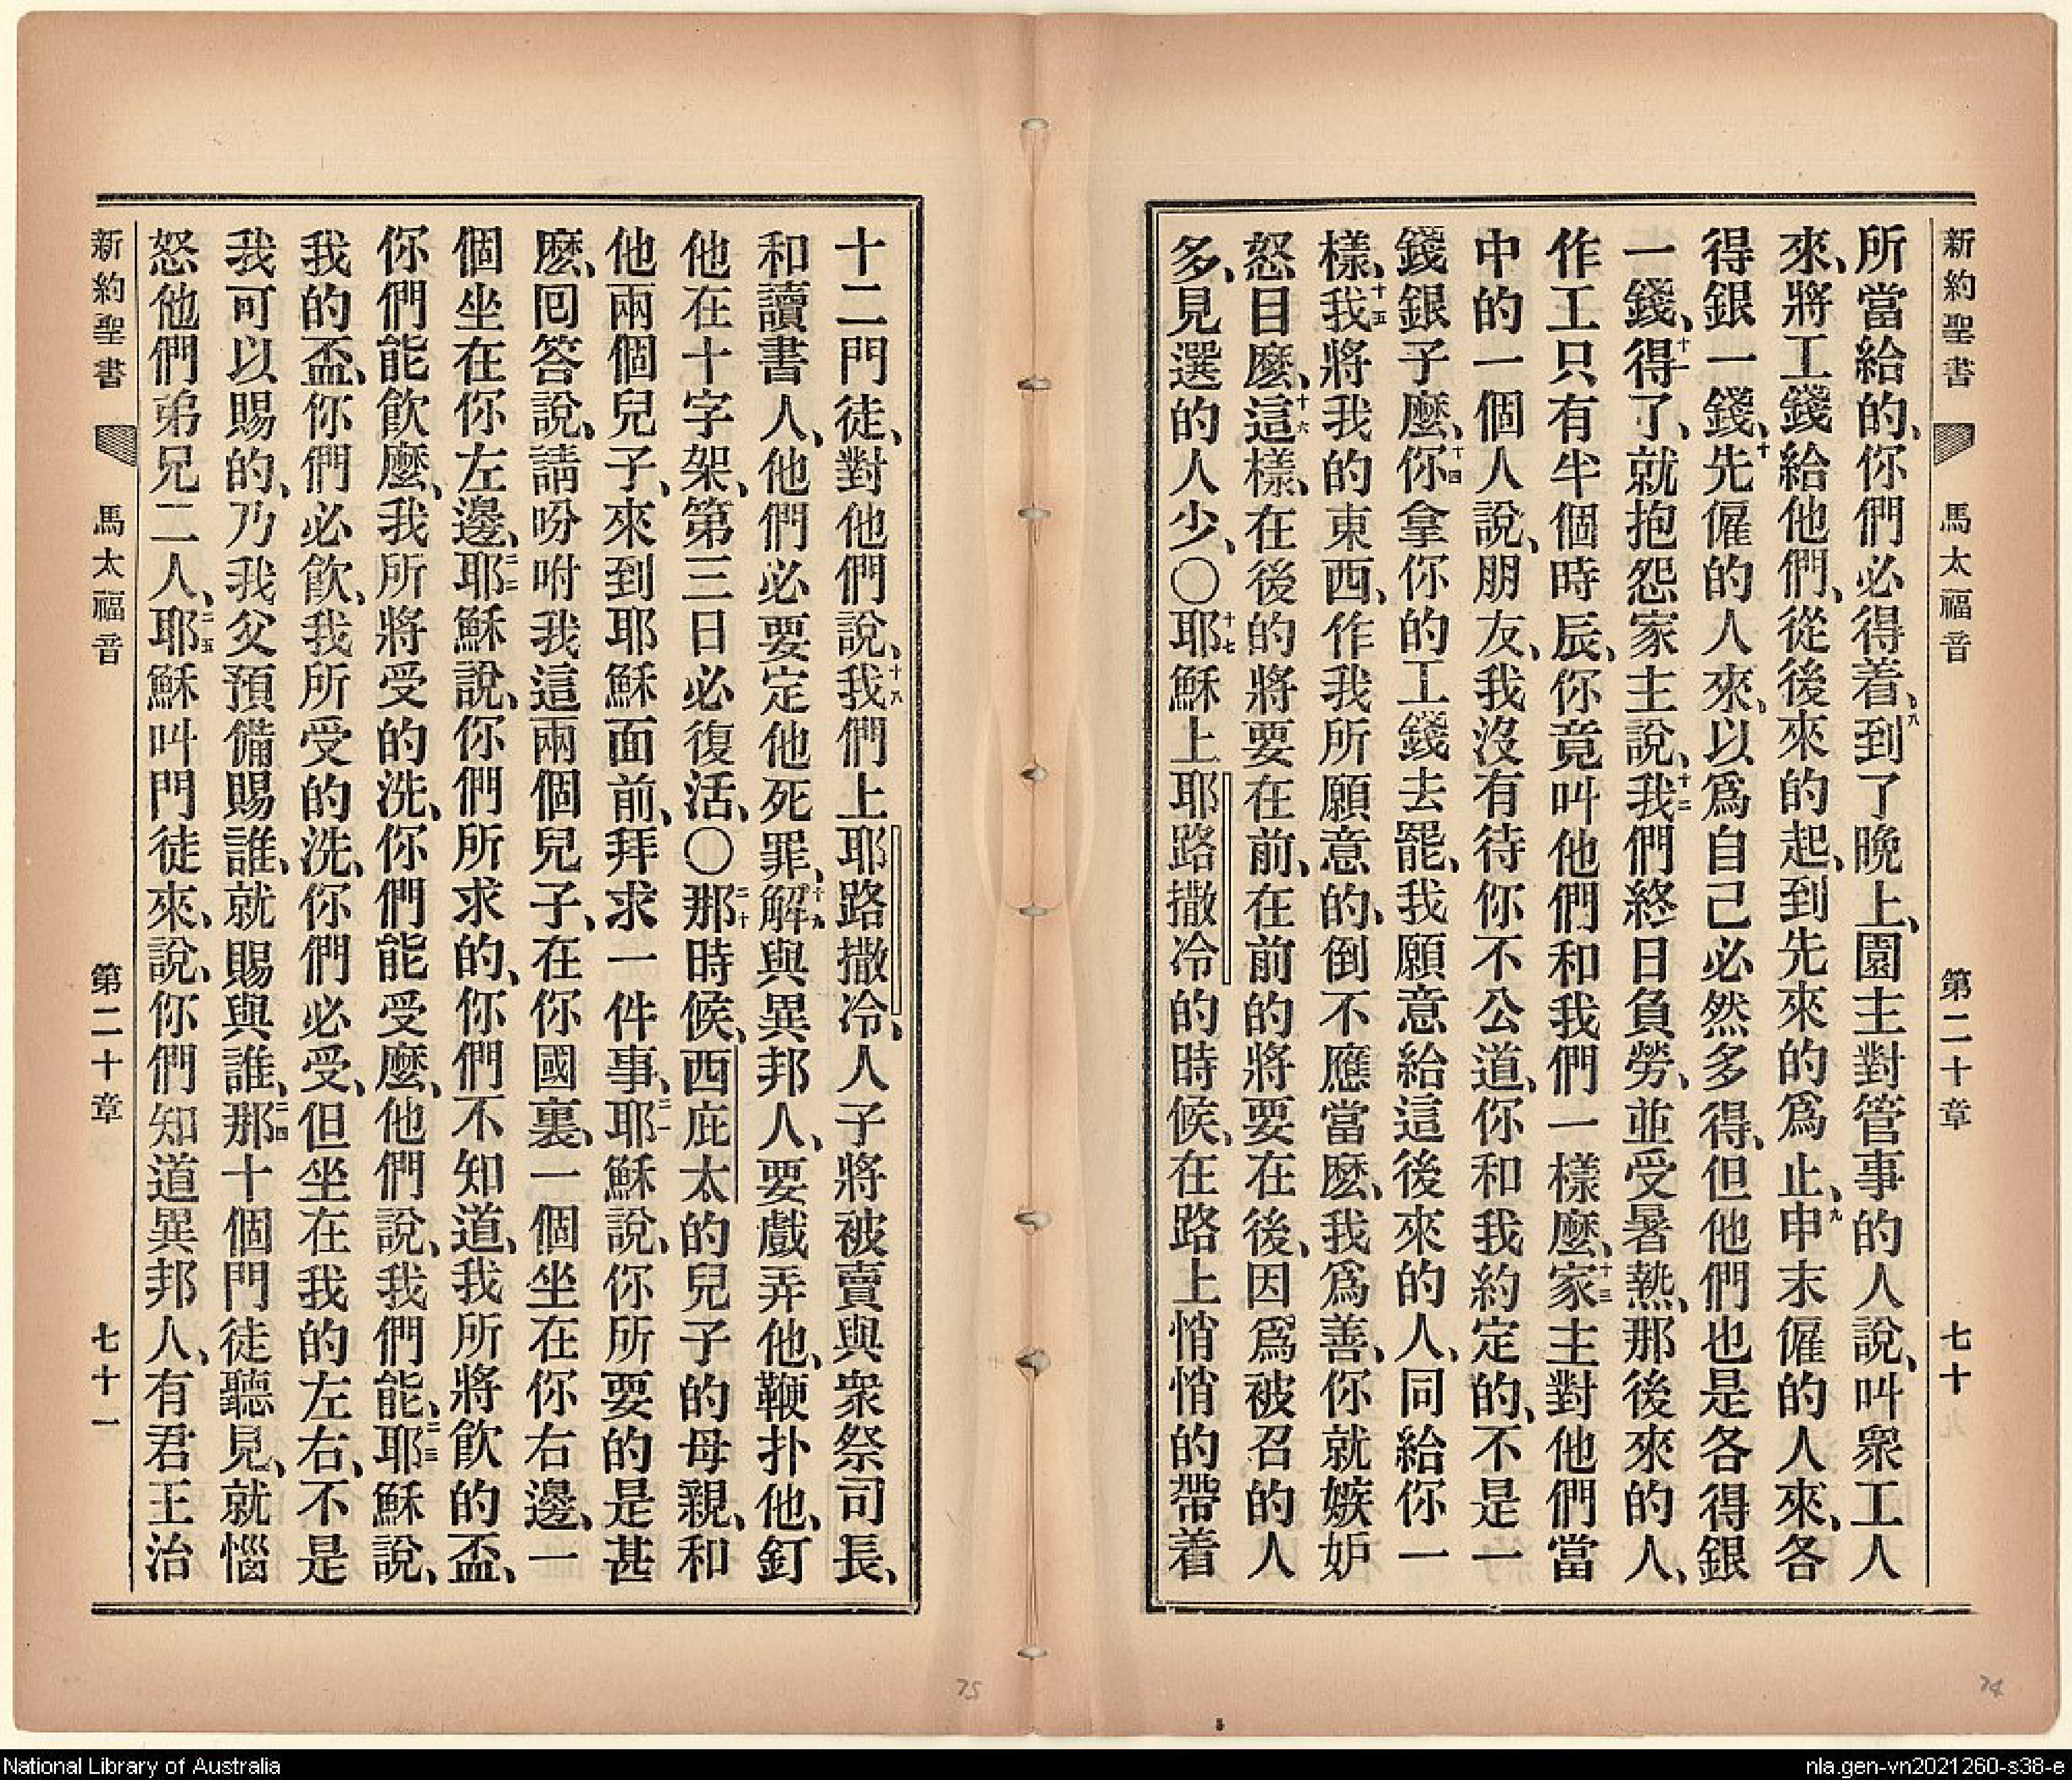 新約聖書 馬太福音 第二十章 七十
所當給的、你們必得着、八到了晚上、園主對管事的人說、叫衆工人
來、將工錢給他們、從後來的起、到先來的爲止、九申末僱的人來、各
得銀一錢、十先僱的人來、以爲自己必然多得、但他們也是各得銀
一錢、十一得了、就抱怨家主說、十二我們終日負勞、並受暑熱、那後來的人、
作工只有半個時辰、你竟叫他們和我們一樣麼、十三家主對他們當
中的一個人說、朋友、我沒有待你不公道、你和我約定的、不是一
錢銀子麼、十四你拿你的工錢去罷、我願意給這後來的人、同給你一
樣、十五我將我的東西、作我所願意的、倒不應當麼、我爲善、你就嫉妒
怒目麼、十六這樣、在後的將要在前、在前的將要在後、因爲被召的人
多、見選的人少、〇十七耶穌上耶路撒冷的時候、在路上悄悄的帶着
十二門徒、對他們說、十八我們上耶路撒冷、人子將被賣與衆祭司長、
和讀書人、他們必要定他死罪、十九解與異邦人、要戲弄他、鞭扑他、釘
他在十字架、第三日必復活、〇二十那時候、西庇太的兒子的母親、和
他兩個兒子、來到耶穌面前、拜求一件事、二一耶穌說、你所要的是甚
麼、回答說、請吩咐我這兩個兒子、在你國裏、一個坐在你右邊、一
個坐在你左邊、二二耶穌說、你們所求的、你們不知道、我所將飲的盃、
你們能飲麼、我所將受的洗、你們能受麼、他們說、我們能、二三耶穌說、
我的盃、你們必飲、我所受的洗、你們必受、但坐在我的左右、不是
我可以賜的、乃我父預備賜誰、就賜與誰、二四那十個門徒聽見、就惱
怒他們弟兄二人、二五耶穌叫門徒來、說、你們知道異邦人、有君王治
新約聖書 馬太福音 第二十章 七十一
75
74
National Library of Australia
nla.gen-vn2021260-s38-e